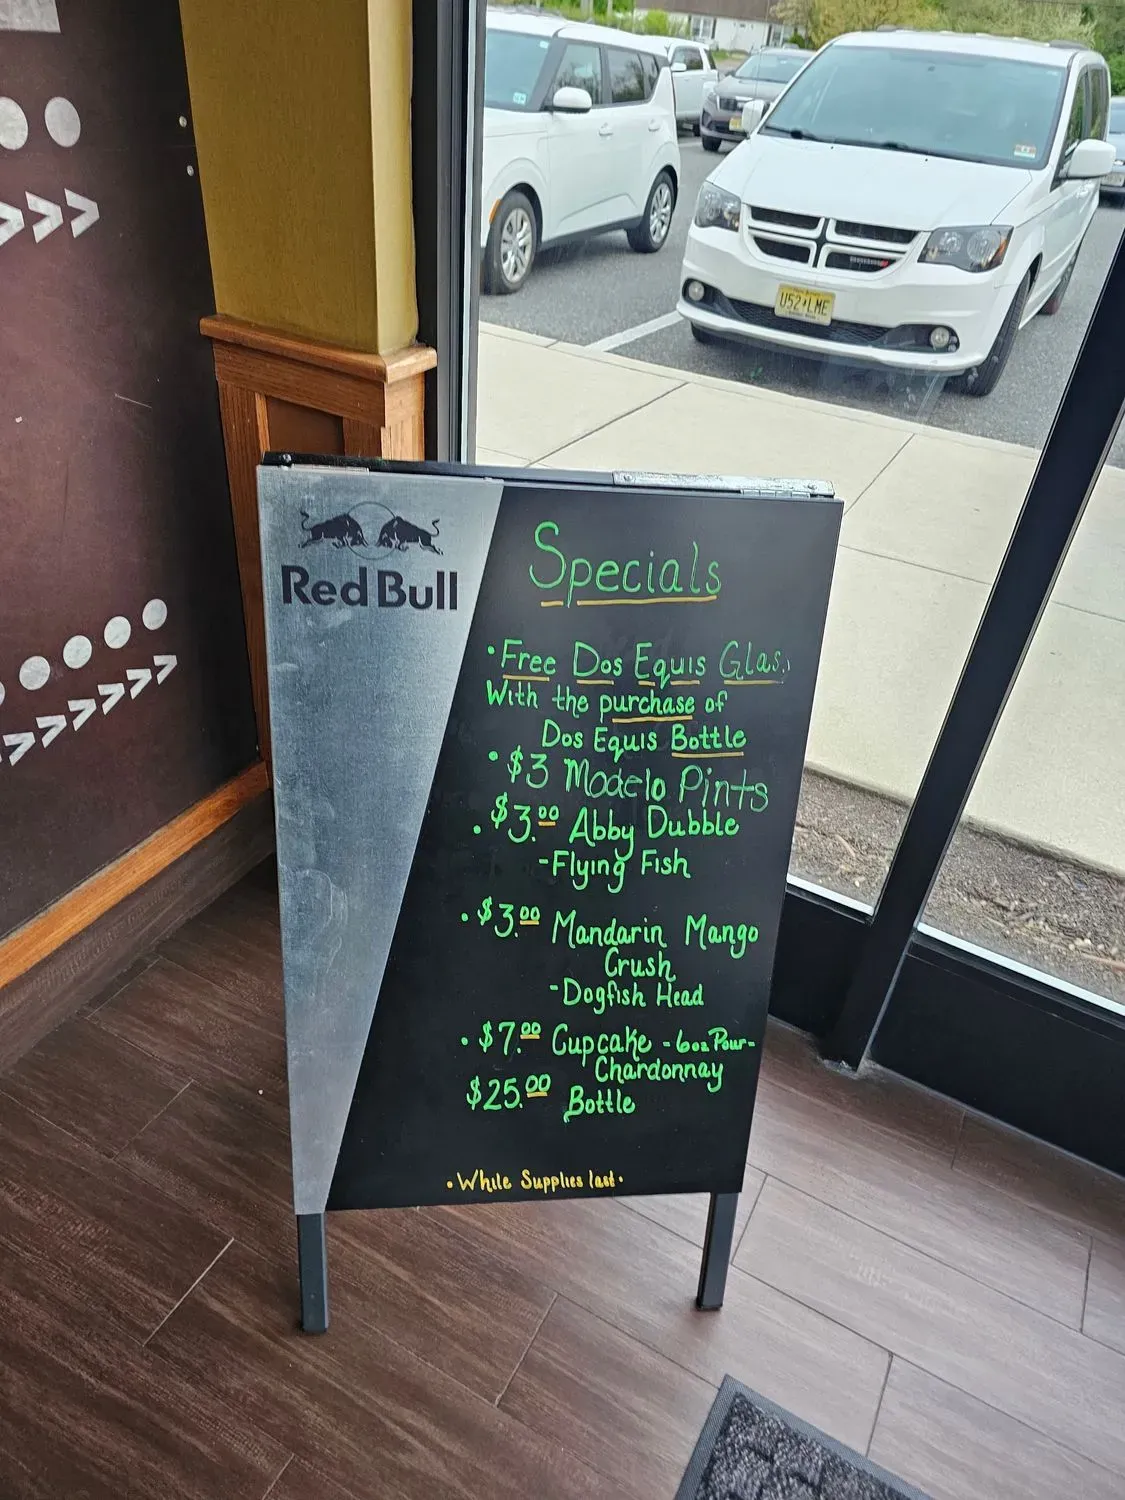 Red Bull
Specials
• Free Dos Equis Glass
With the purchase of
Dos Equis Bottle
• $3 Modelo Pints
• $3.00 Abby Dubble
- Flying Fish
• $3.00 Mandarin Mango
Crush
- Dogfish Head
• $7.00 Cupcake - 6oz Pour -
Chardonnay
$25.00 Bottle
• While Supplies last •
U52 LME